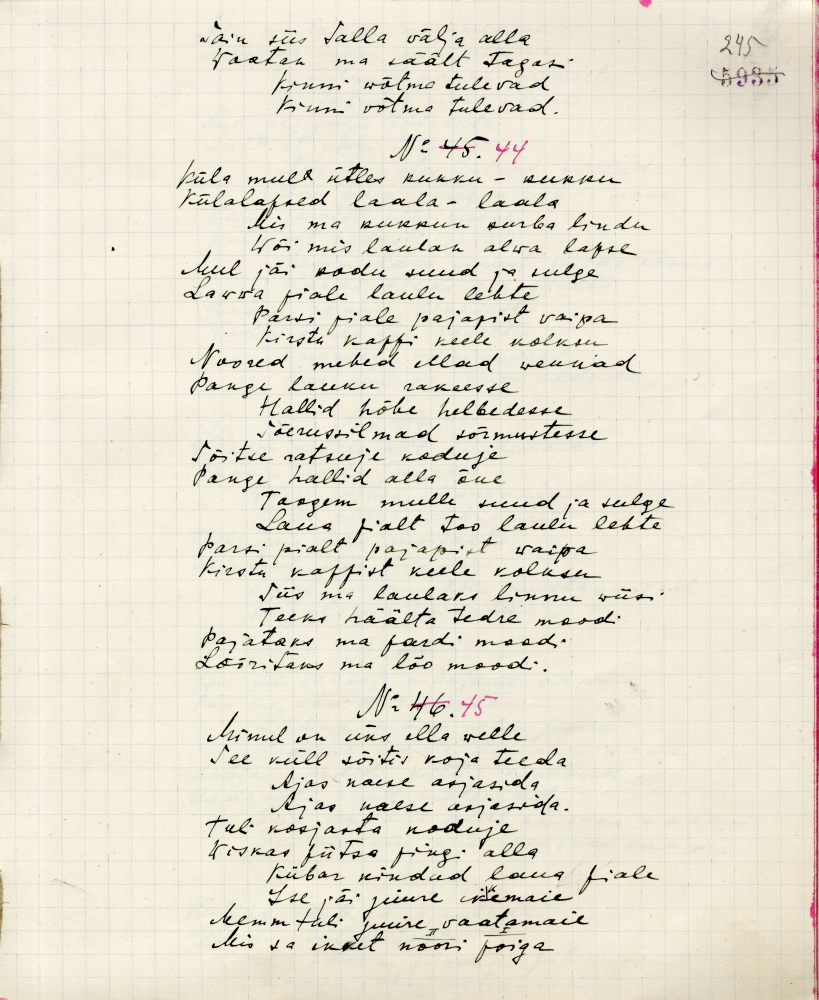 245
5935
Sain siis Salla välja alla
Waatan ma säält tagasi
Kinni wõtma tulevad
Kinni võtma tulevad.
No 45. 44
Küla mull ütles kukku - kukku
Külalapsed laala - laala
Mis ma kukkun kurba lindu
Wõi mis laulan alwa lapse
Mul jäi kodu suud ja sulge
Lawwa piale laulu lehte
Parsi piale pajapist vaipa
Kirstu kappi keele kolksu
Noored mehed ellad wennad
Pange lauku rakeesse
Hallid hõbe helbedesse
Sõerussilmad sõrmustesse
Sõitse ratsuje koduje
Pange hallid alla õue
Toogem mulle suud ja sulge
Laua pialt too laulu lehte
Parsi pialt pajapist waipa
Kirstu kappist keele kolksu
Siis ma laulaks linnu wiisi
Teeks häälta tedre moodi
Pajataks ma pardi moodi
Lõõritaks ma lõo moodi.
No 46. 45
Minul on üks ella welle
See küll sõitis koja teeda
Ajas naese asjasida
Ajas naese asjasida.
Tuli kosjasta koduje
Wiskas piitsa pingi alla
Kübar kindad laua piale
Ise jäi juure ikkemaie
Memm tuli juure vaatamaie
Mis sa ikket noori poiga